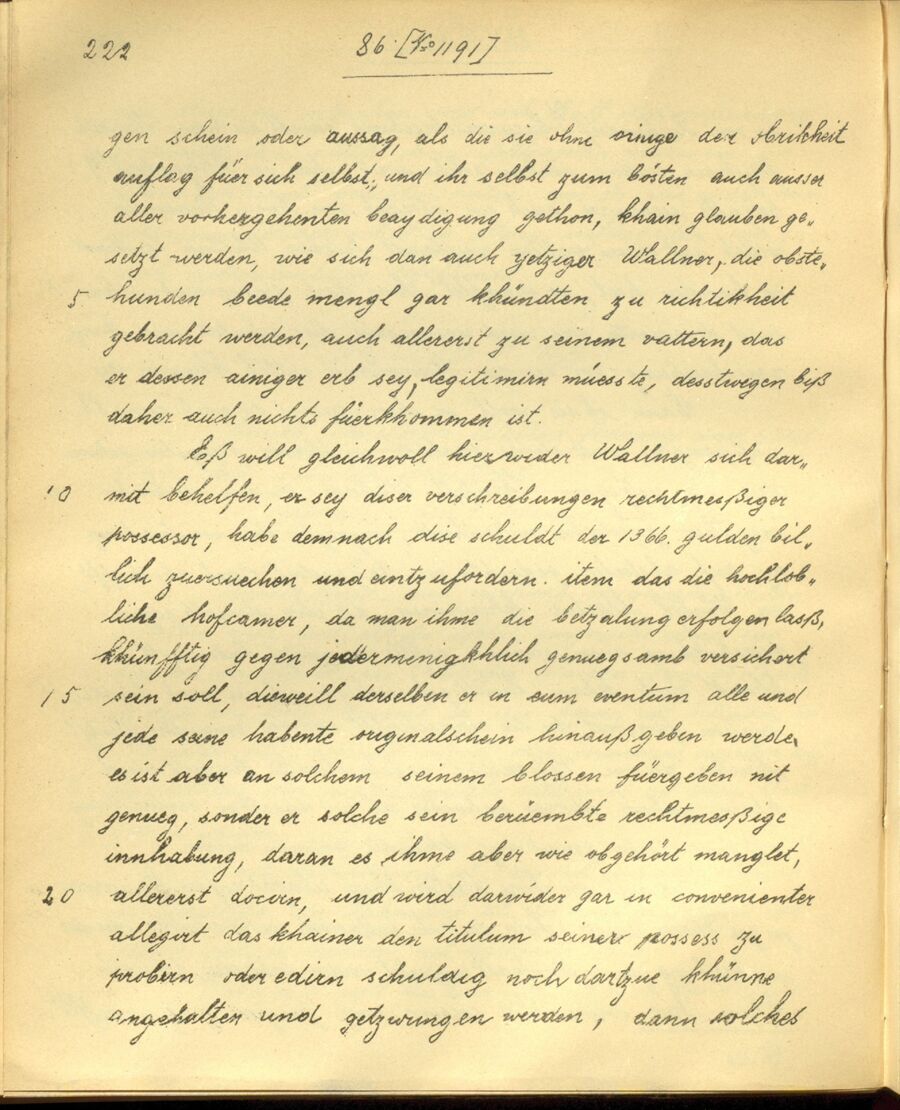 222
86 [No 1191]
gen schein oder aussag, als die sie ohne einige der Obrikheit
auflag füer sich selbst, und ihr selbst zum bösten auch ausser
aller vorhergehenten beaydigung gethon, khain glauben ge„
setzt werden, wie sich dan auch yetziger Wallner, die obste„
5 hunden beede mengl gar khündten zu richtikheit
gebracht werden, auch allererst zu seinem vattern, das
er dessen ainiger erb sey, legitimirn müesste, desstwegen biß
daher auch nichts füerkhommen ist.
Eß will gleichwoll hierwider Wallner sich dar„
10 mit behelfen, er sey diser verschreibungen rechtmeßiger
possessor, habe demnach dise schuldt der 1366. gulden bil„
lich zuersuechen und eintzufordern. item das die hochlob„
liche hofcamer, da man ihme die betzalung erfolgen lasß,
khünfftig gegen jedermenigkhlich genuegsamb versichert
15 sein soll, dieweill derselben er in eum eventum alle und
jede seine habente originalschein hinaußgeben werde,
es ist aber an solchem seinem blossen füergeben nit
genueg, sonder er solche sein berüembte rechtmeßige
innhabung, daran es ihme aber wie obgehört manglet,
20 allererst docirn, und wird darwider gar in convenienter
allegirt das khainer den titulum seiner possess zu
probirn oder edirn schuldig noch dartzue khünne
angehalten und getzwungen werden, dann solches